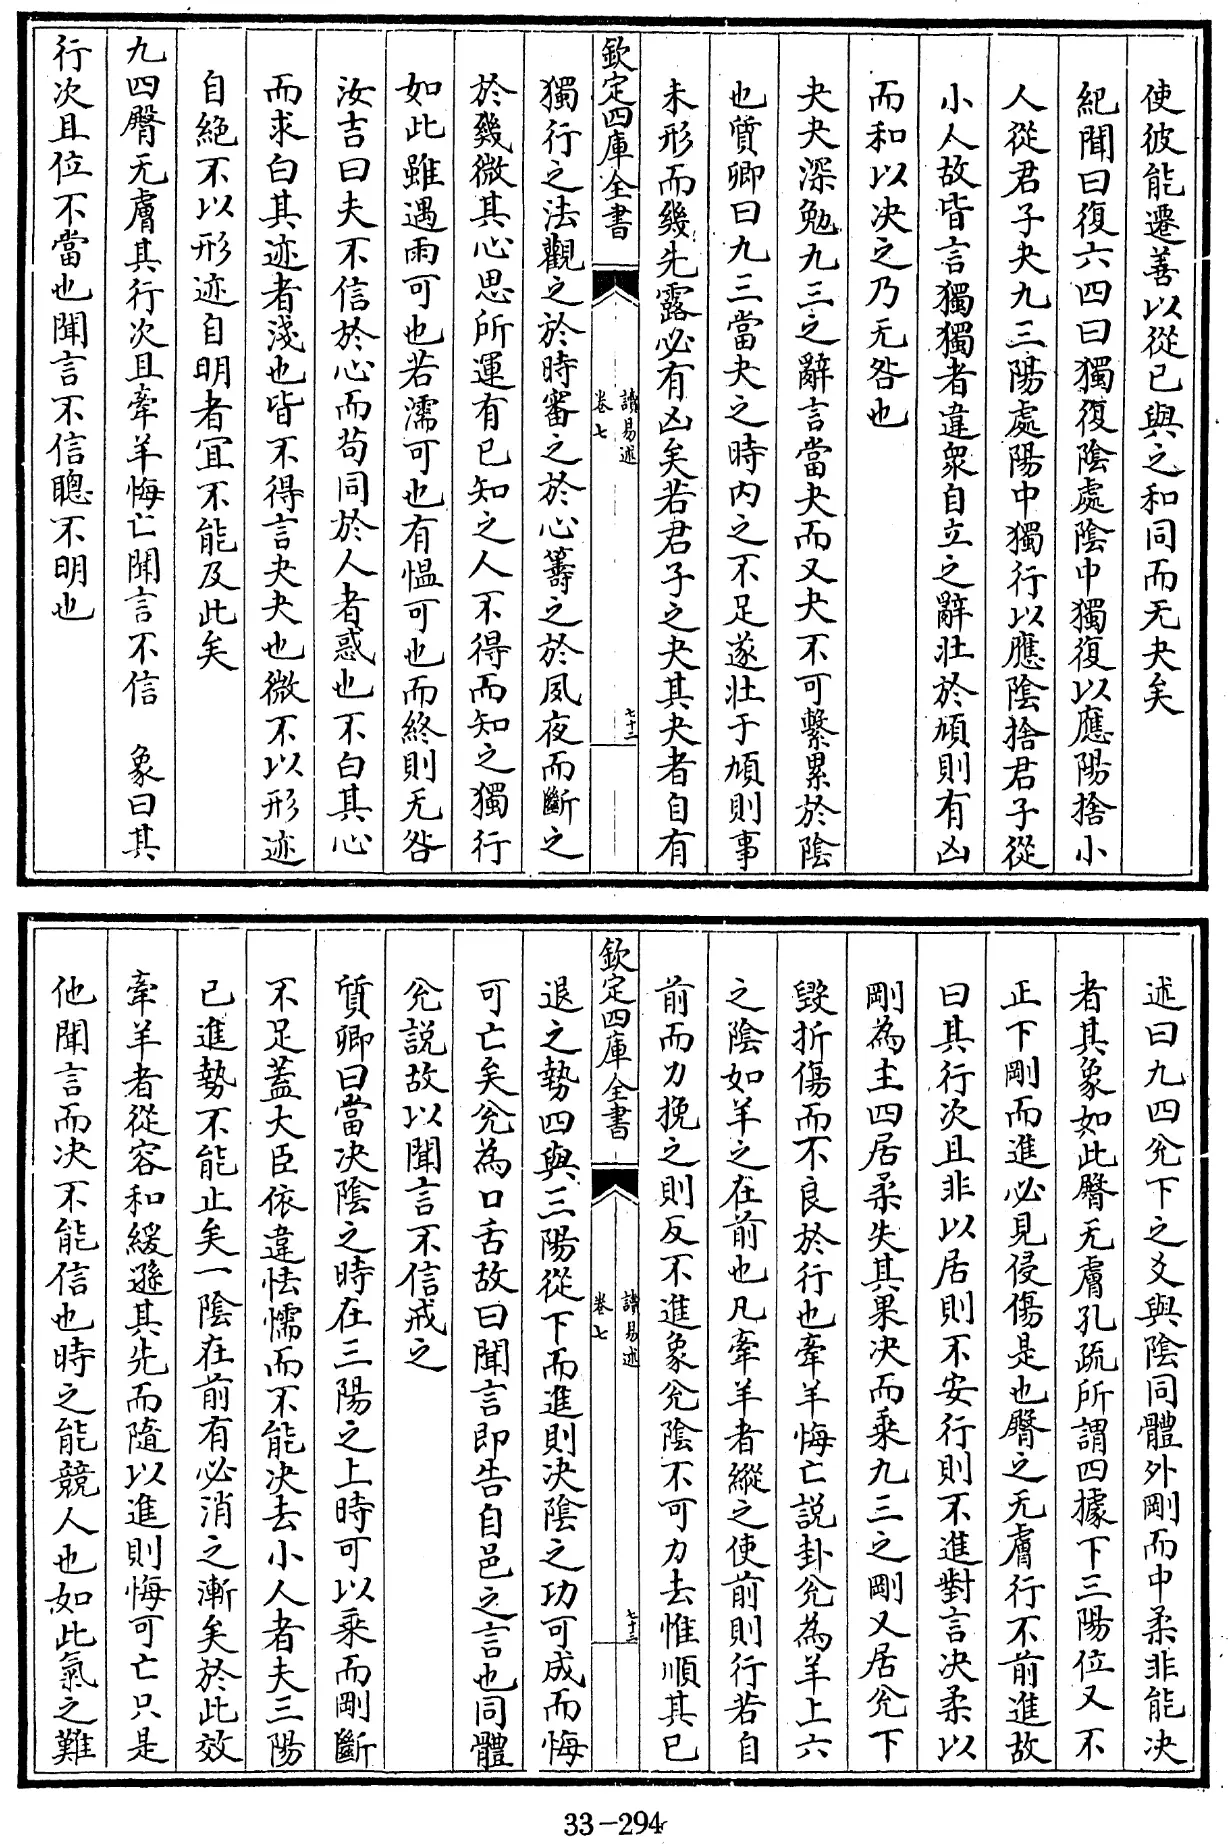 使彼能遷善以從已與之和同而无夬矣
紀聞曰復六四曰獨復陰處陰中獨復以應陽捨小
人從君子夬九三陽處陽中獨行以應陰捨君子從
小人故皆言獨獨者違衆自立之辭壯於頄則有凶
而和以决之乃无咎也
夬夬深勉九三之辭言當夬而又夬不可繫累於陰
也質卿曰九三當夬之時内之不足遂壯于頄則事
未形而幾先露必有凶矣若君子之夬其夬者自有
欽定四庫全書
讀易述
卷七
七十二
獨行之法觀之於時審之於心籌之於夙夜而斷之
於幾微其心思所運有已知之人不得而知之獨行
如此雖遇雨可也若濡可也有愠可也而終則无咎
汝吉曰夫不信於心而苟同於人者惑也不白其心
而求白其迹者淺也皆不得言夬夬也微不以形迹
自絶不以形迹自明者冝不能及此矣
九四臀无膚其行次且牽羊悔亡聞言不信 象曰其
行次且位不當也聞言不信聰不明也
述曰九四兊下之爻與陰同體外剛而中柔非能决
者其象如此臀无膚孔疏所謂四據下三陽位又不
正下剛而進必見侵傷是也臀之无膚行不前進故
曰其行次且非以居則不安行則不進對言决柔以
剛為主四居柔失其果决而乗九三之剛又居兊下
毁折傷而不良於行也牽羊悔亡説卦兊為羊上六
之陰如羊之在前也凡牽羊者縱之使前則行若自
前而力挽之則反不進象兊陰不可力去惟順其已
欽定四庫全書
讀易述
卷七
七十三
退之勢四與三陽從下而進則决陰之功可成而悔
可亡矣兊為口舌故曰聞言即告自邑之言也同體
兊説故以聞言不信戒之
質卿曰當决陰之時在三陽之上時可以乗而剛斷
不足蓋大臣依違怯懦而不能决去小人者夫三陽
已進勢不能止矣一陰在前有必消之漸矣於此效
牽羊者從容和緩遜其先而隨以進則悔可亡只是
他聞言而决不能信也時之能競人也如此氣之難
33-294